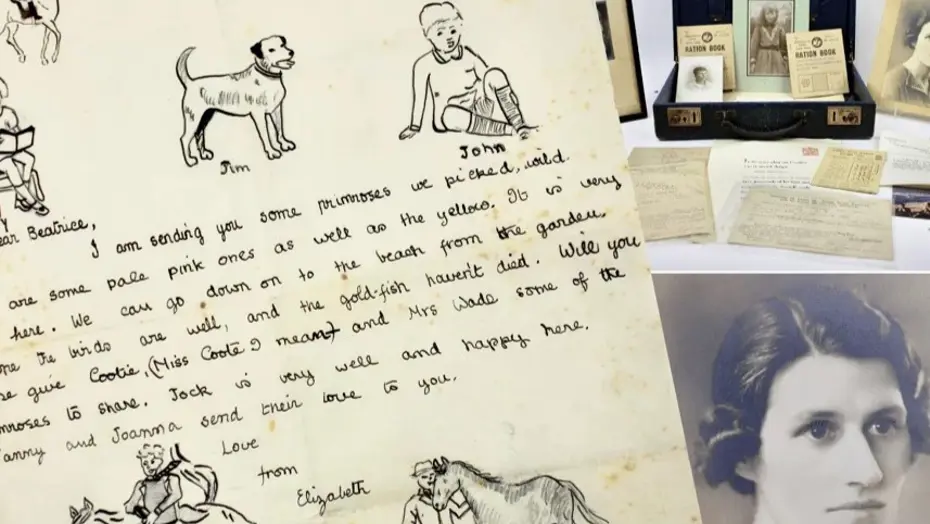 Jim
John
ear Beatrice,
I am sending you some primroses we picked, wild.
are some pale pink ones as well as the yellow. It is very
here. We can go down on to the beach from the garden.
ope the birds are well, and the gold-fish haven't died. Will you
se give Cootie, (Miss Coote I mean) and Mrs Wade some of the
mroses to share. Jock is very well and happy here.
anny and Joanna send their love to you.
Love
from
Elizabeth
RATION BOOK
RATION BOOK